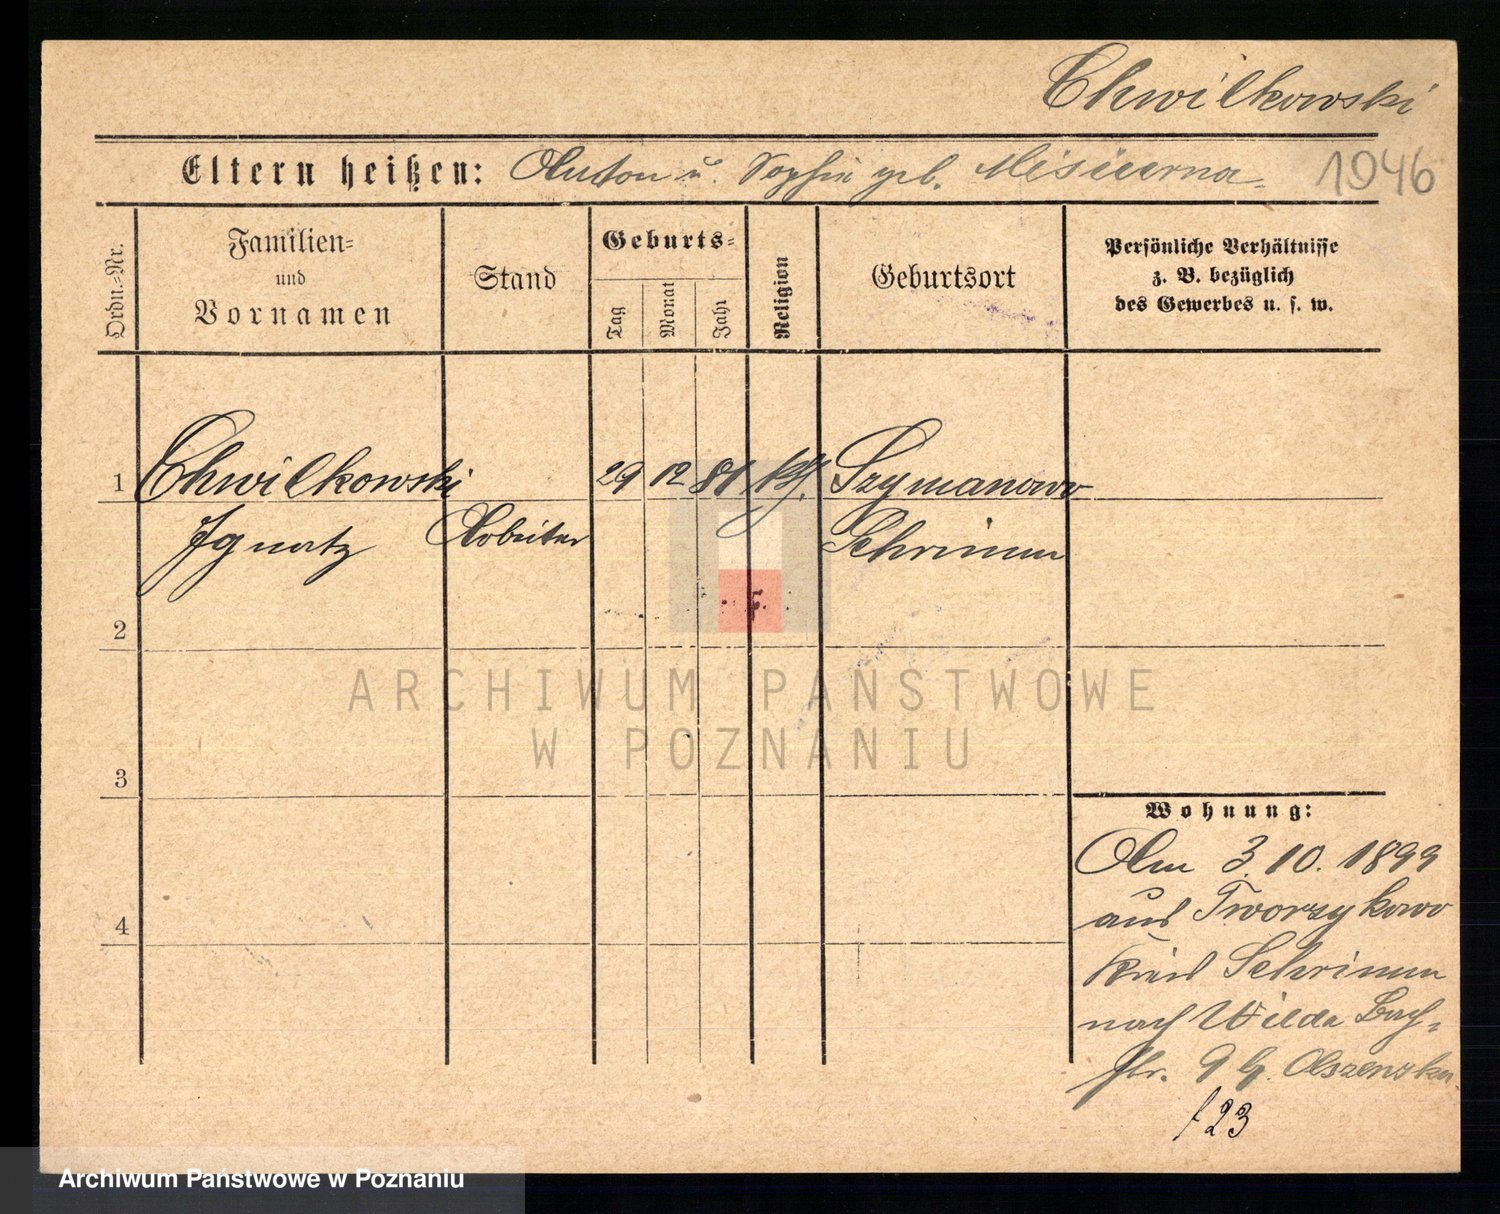 Chwilkowski
Eltern heißen: Anton u. Sophie geb. Misiurna 1946
Ordn.-Nr.
Familien-
und
Vornamen
Stand
Geburts-
Tag
Monat
Jahr
Religion
Geburtsort
Persönliche Verhältnisse
z. B. bezüglich
des Gewerbes u. s. w.
1 Chwilkowski 29 12 81 kth. Szymanowo
Ignatz Arbeiter Schrimm
2
ARCHIWUM PAŃSTWOWE
W POZNANIU
3
Wohnung:
Am 3. 10. 1899
aus Tworzykowo
Kreis Schrimm
nach Wilda Bach-
str. 9 b. Olszenska
4
/23
Archiwum Państwowe w Poznaniu